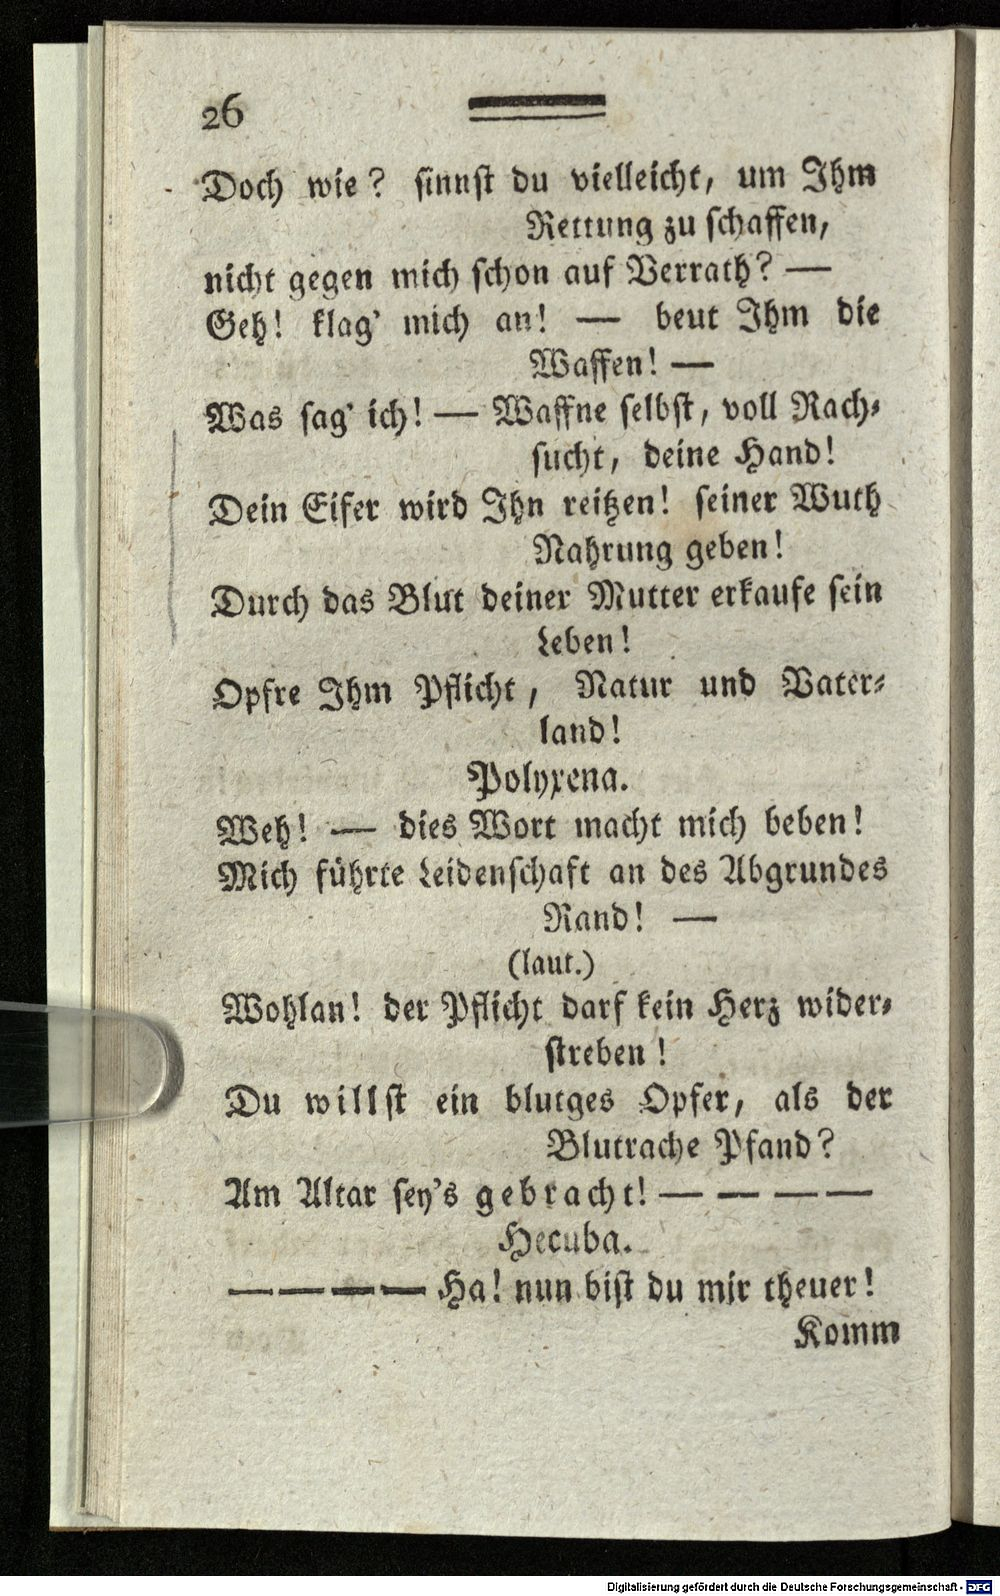 26
Doch wie? sinnst du vielleicht, um Ihm
Rettung zu schaffen,
nicht gegen mich schon auf Verrath? —
Geh! klag' mich an! — beut Ihm die
Waffen! —
Was sag' ich! — Waffne selbst, voll Rach-
sucht, deine Hand!
Dein Eifer wird Ihn reitzen! seiner Wuth
Nahrung geben!
Durch das Blut deiner Mutter erkaufe sein
Leben!
Opfre Ihm Pflicht, Natur und Vater-
land!
Polyxena.
Weh! — dies Wort macht mich beben!
Mich führte Leidenschaft an des Abgrundes
Rand! —
(laut.)
Wohlan! der Pflicht darf kein Herz wider-
streben!
Du willst ein blutges Opfer, als der
Blutrache Pfand?
Am Altar sey's gebracht! — — — —
Hecuba.
— — — — Ha! nun bist du mir theuer!
Komm
Digitalisierung gefördert durch die Deutsche Forschungsgemeinschaft - DFG